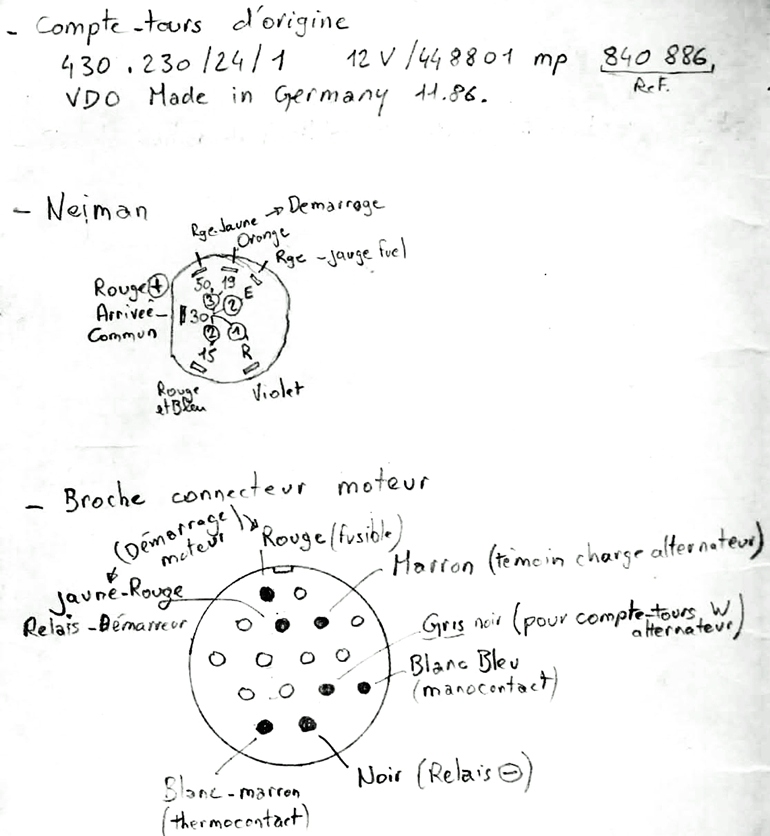 - Compte-tours d'origine
430.230/24/1 12V/448801 mp 840 886,
Ref.
VDO Made in Germany 11.86.
- Neiman
Rge-Jaune → Demarrage
Orange
Rge - jauge fuel
Rouge +
Arrivée -
Commun
50 19
3 2 E
30
2 1
15 R
Rouge
et Bleu
Violet
- Broche connecteur moteur
(Démarrage
moteur)
Rouge (fusible)
Marron (témoin charge alternateur)
Jaune-Rouge
Relais-Démarreur
Gris noir (pour compte-tours, W
alternateur)
Blanc Bleu
(manocontact)
Noir (Relais -)
Blanc-marron
(thermocontact)